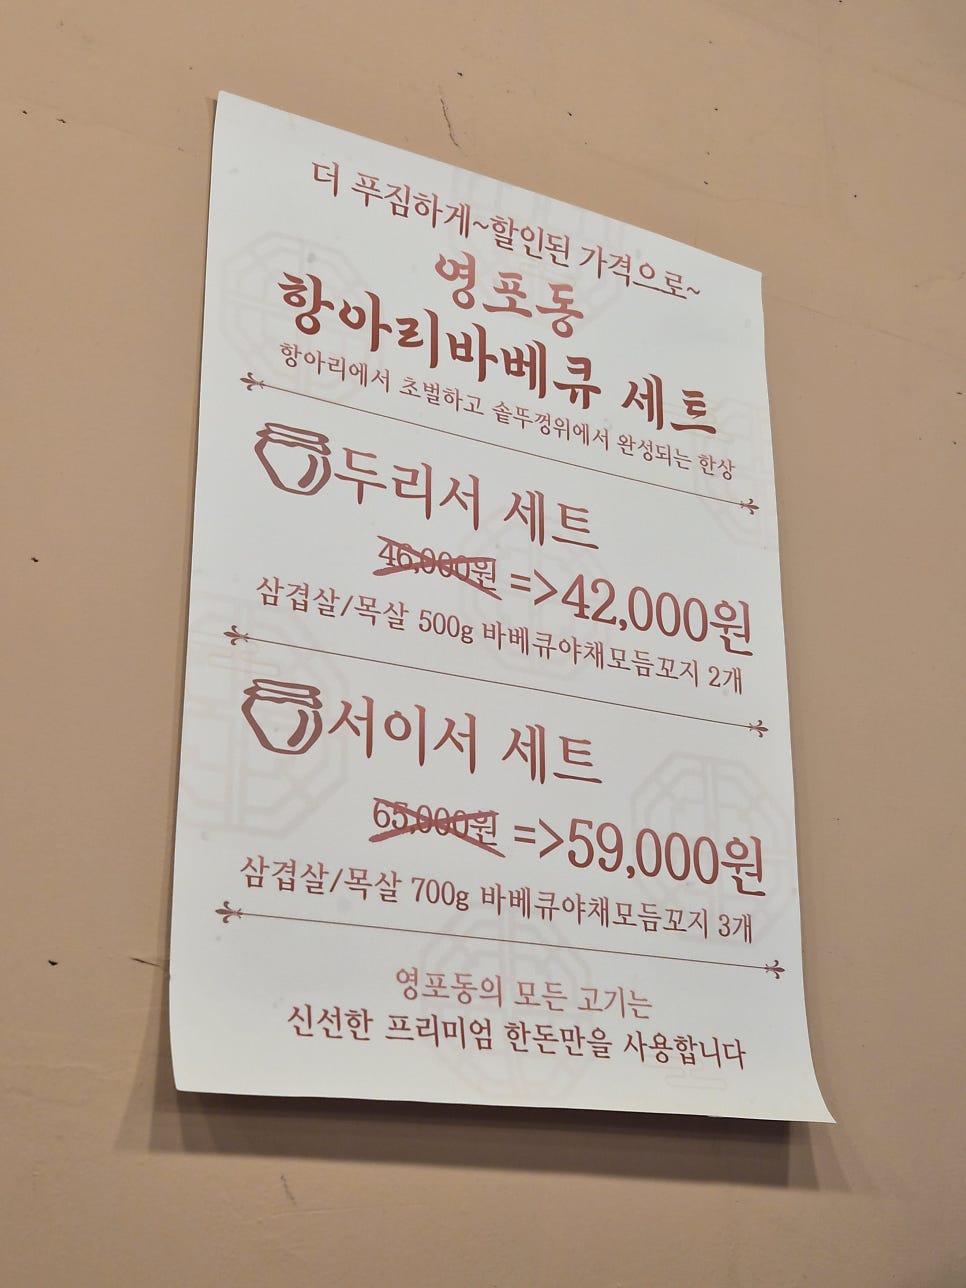 더 푸짐하게~할인된 가격으로~
영포동
항아리바베큐 세트
항아리에서 초벌하고 솥뚜껑위에서 완성되는 한상
두리서 세트
46,000원 =>42,000원
삼겹살/목살 500g 바베큐야채모듬꼬지 2개
서이서 세트
65,000원 =>59,000원
삼겹살/목살 700g 바베큐야채모듬꼬지 3개
영포동의 모든 고기는
신선한 프리미엄 한돈만을 사용합니다